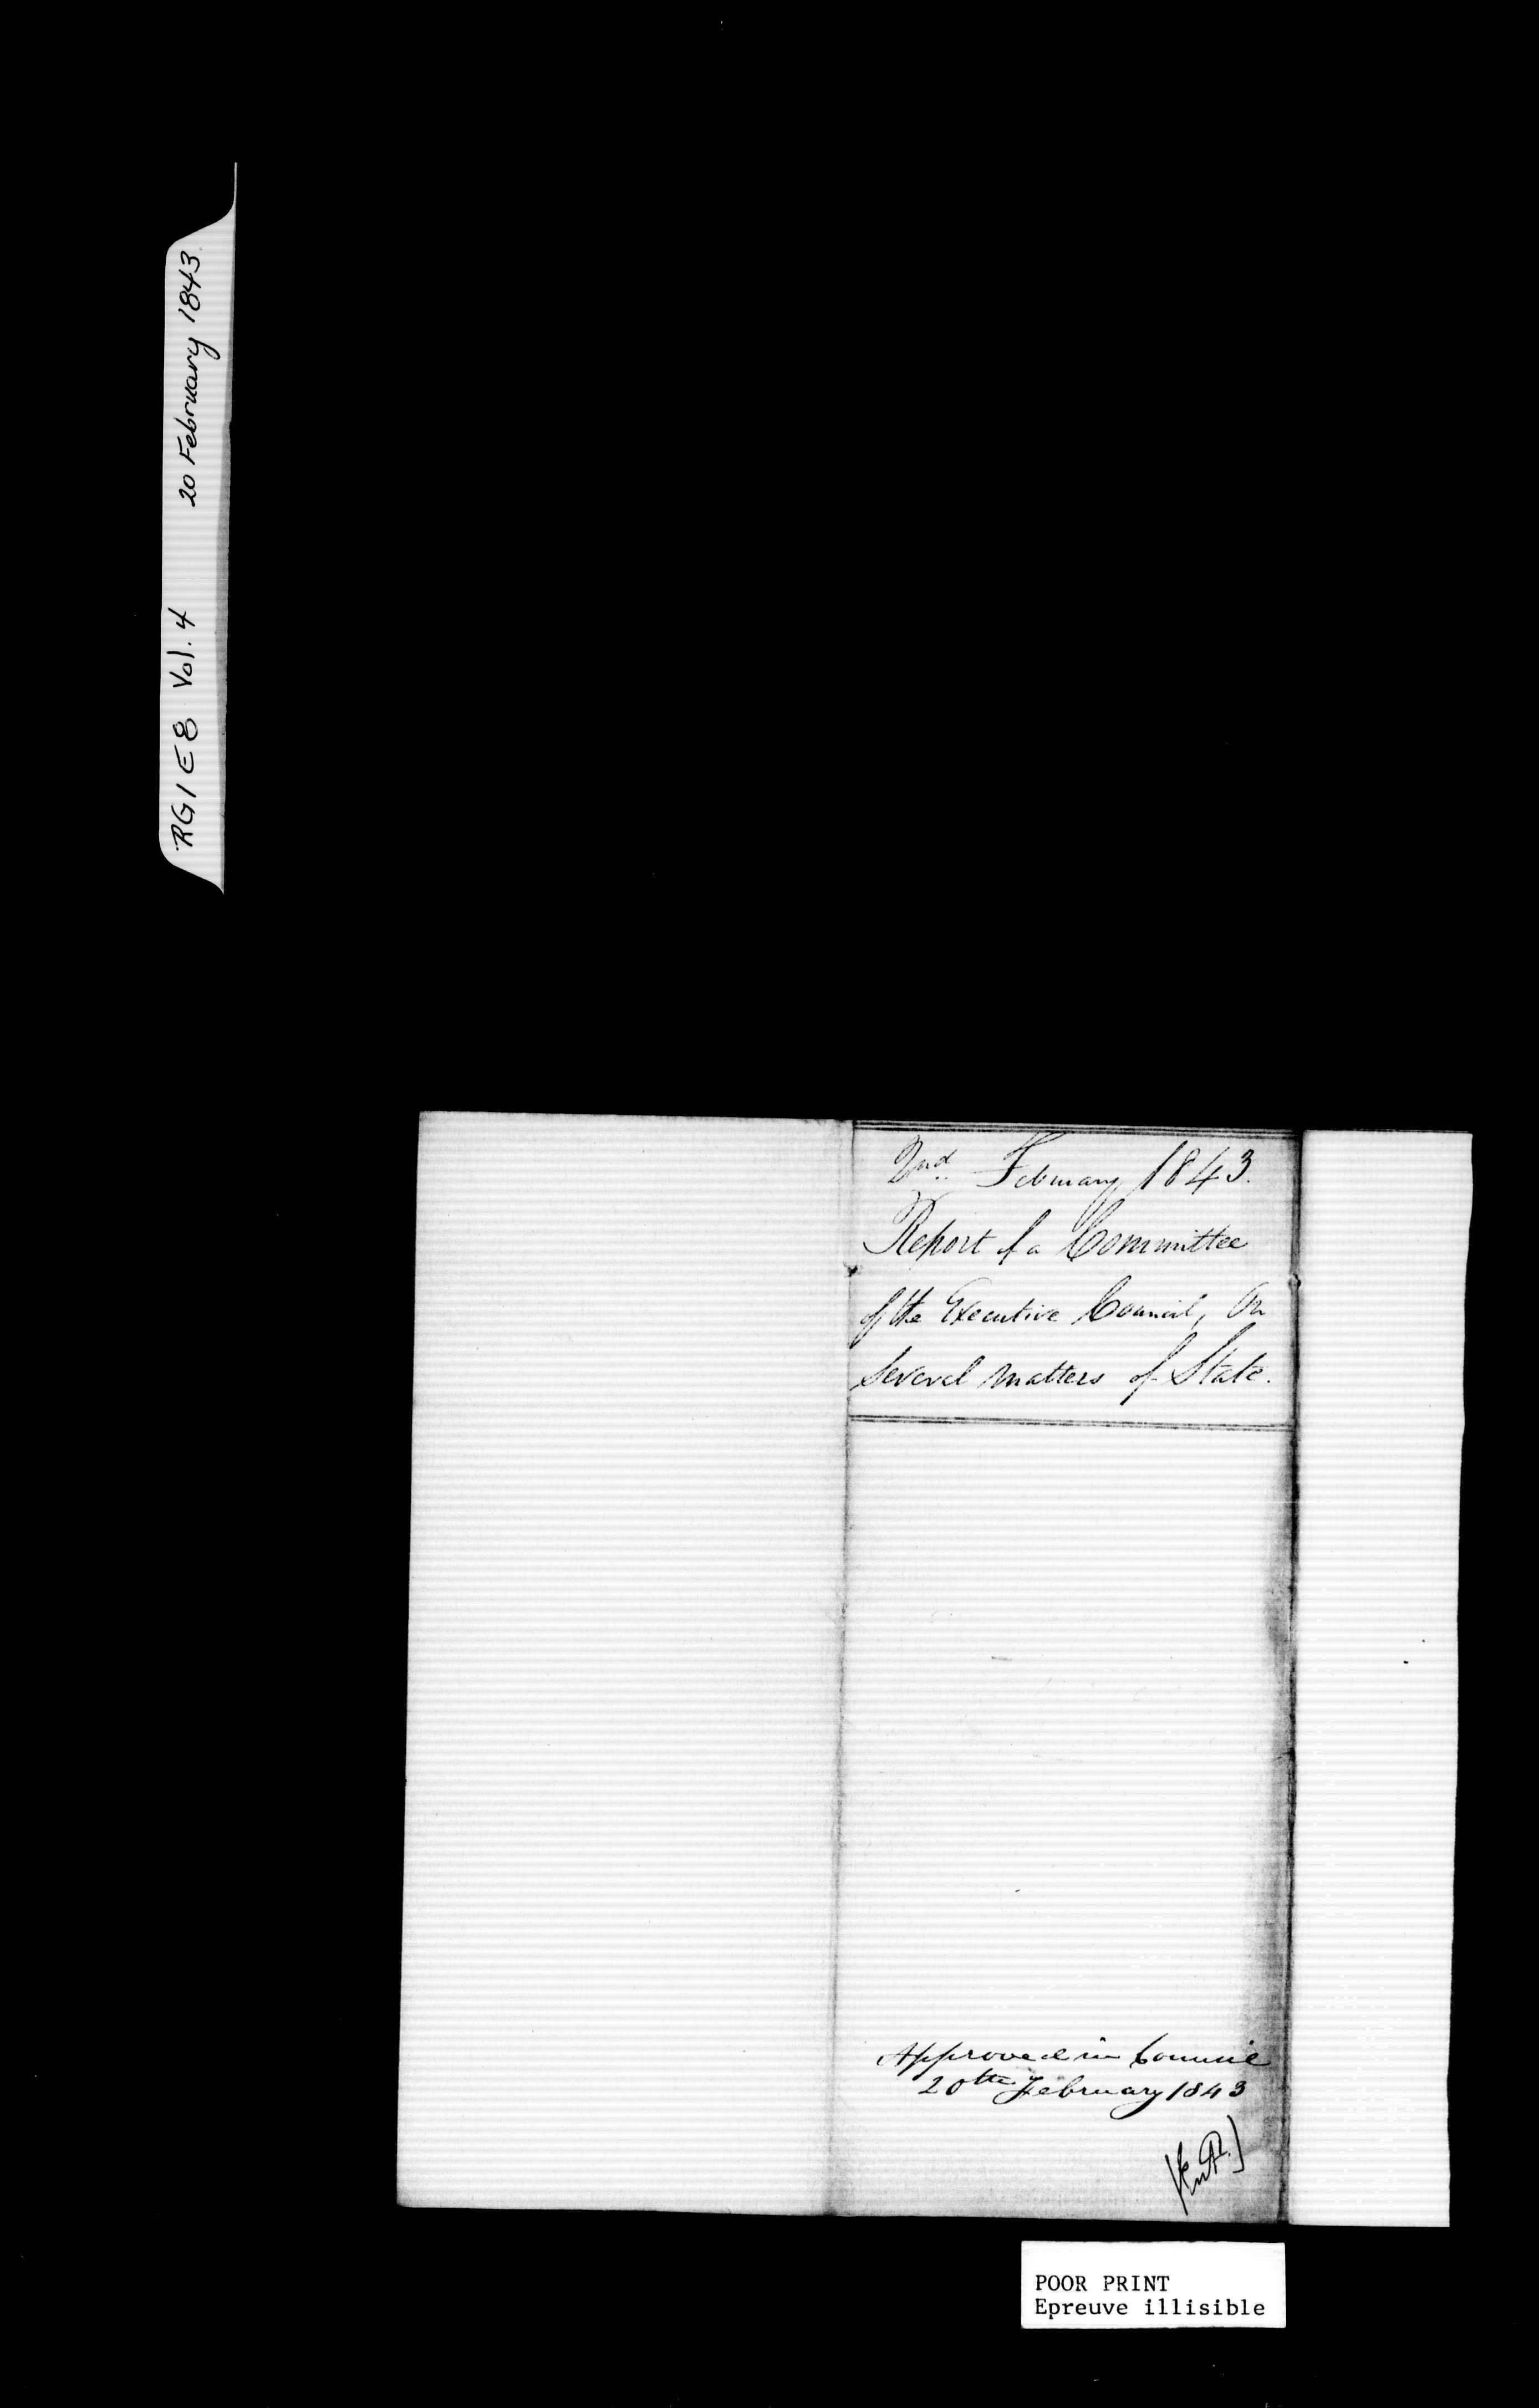 RG1 E8 Vol. 4 20 February 1843
2nd. February 1843.
Report of a Committee
of the Executive Council, On
Several matters of State.
Approved in Council
20th February 1843
POOR PRINT
Epreuve illisible